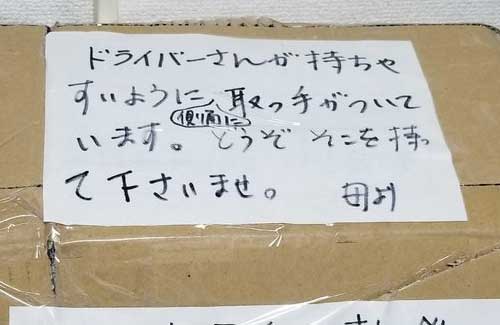 ドライバーさんが持ちゃ
すいように、取っ手がついて
側面に
います。どうぞ そこを持っ
て下さいませ。 母より